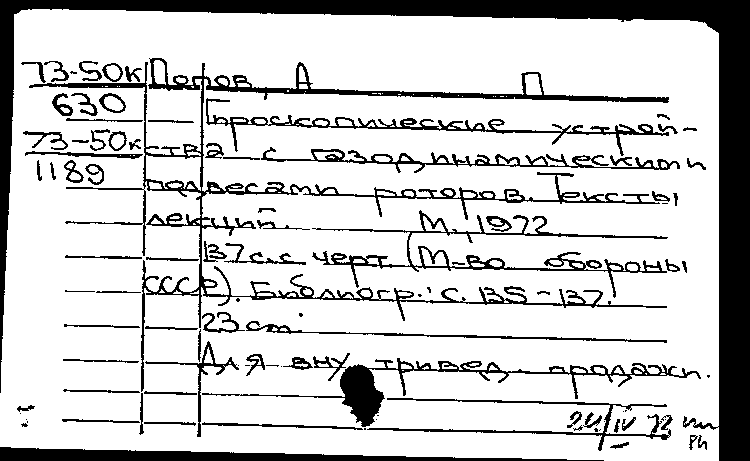 73-50к Попов, А П
630 Гироскопические устрой-
73-50к ства с газодинамическими
1189 подвесами роторов. Тексты
лекций. М., 1972.
137 с. с черт. (М-во обороны
СССР). Библиогр.: с. 135-137.
23 cm.
Для внутривед. продажи.
24/IV 73